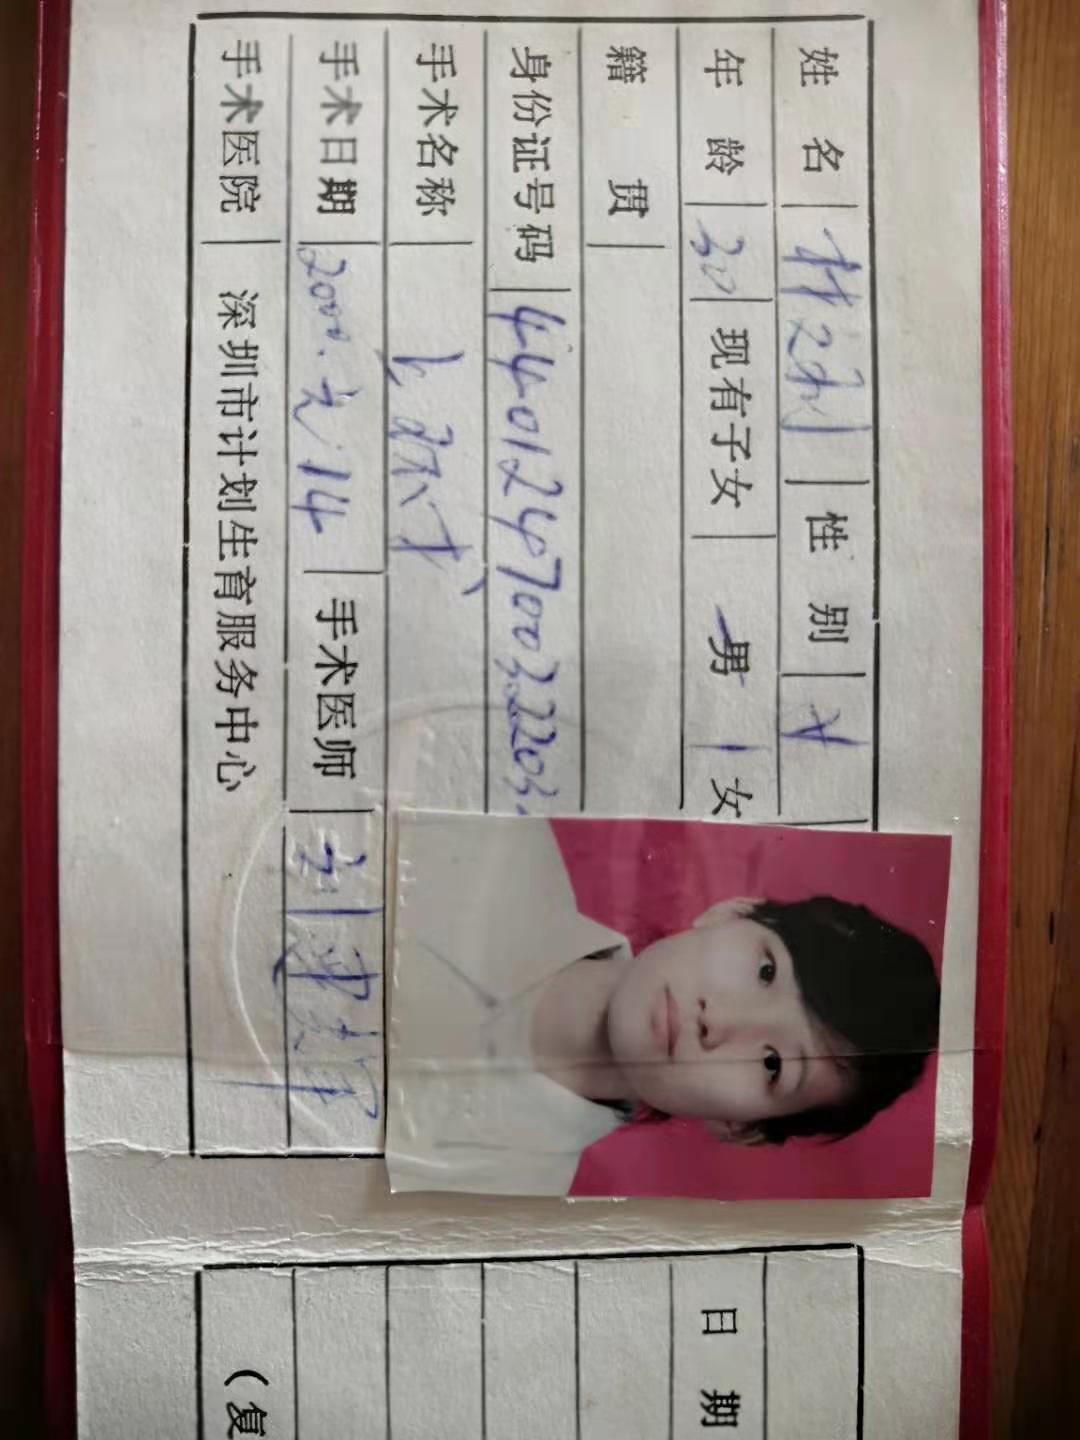 姓名 林 性别 女
年龄 30 现有子女 男 1 女
籍贯
身份证号码 440124700322203
手术名称
手术日期 2000.元.14 手术医师
手术医院 深圳市计划生育服务中心
日期
（复